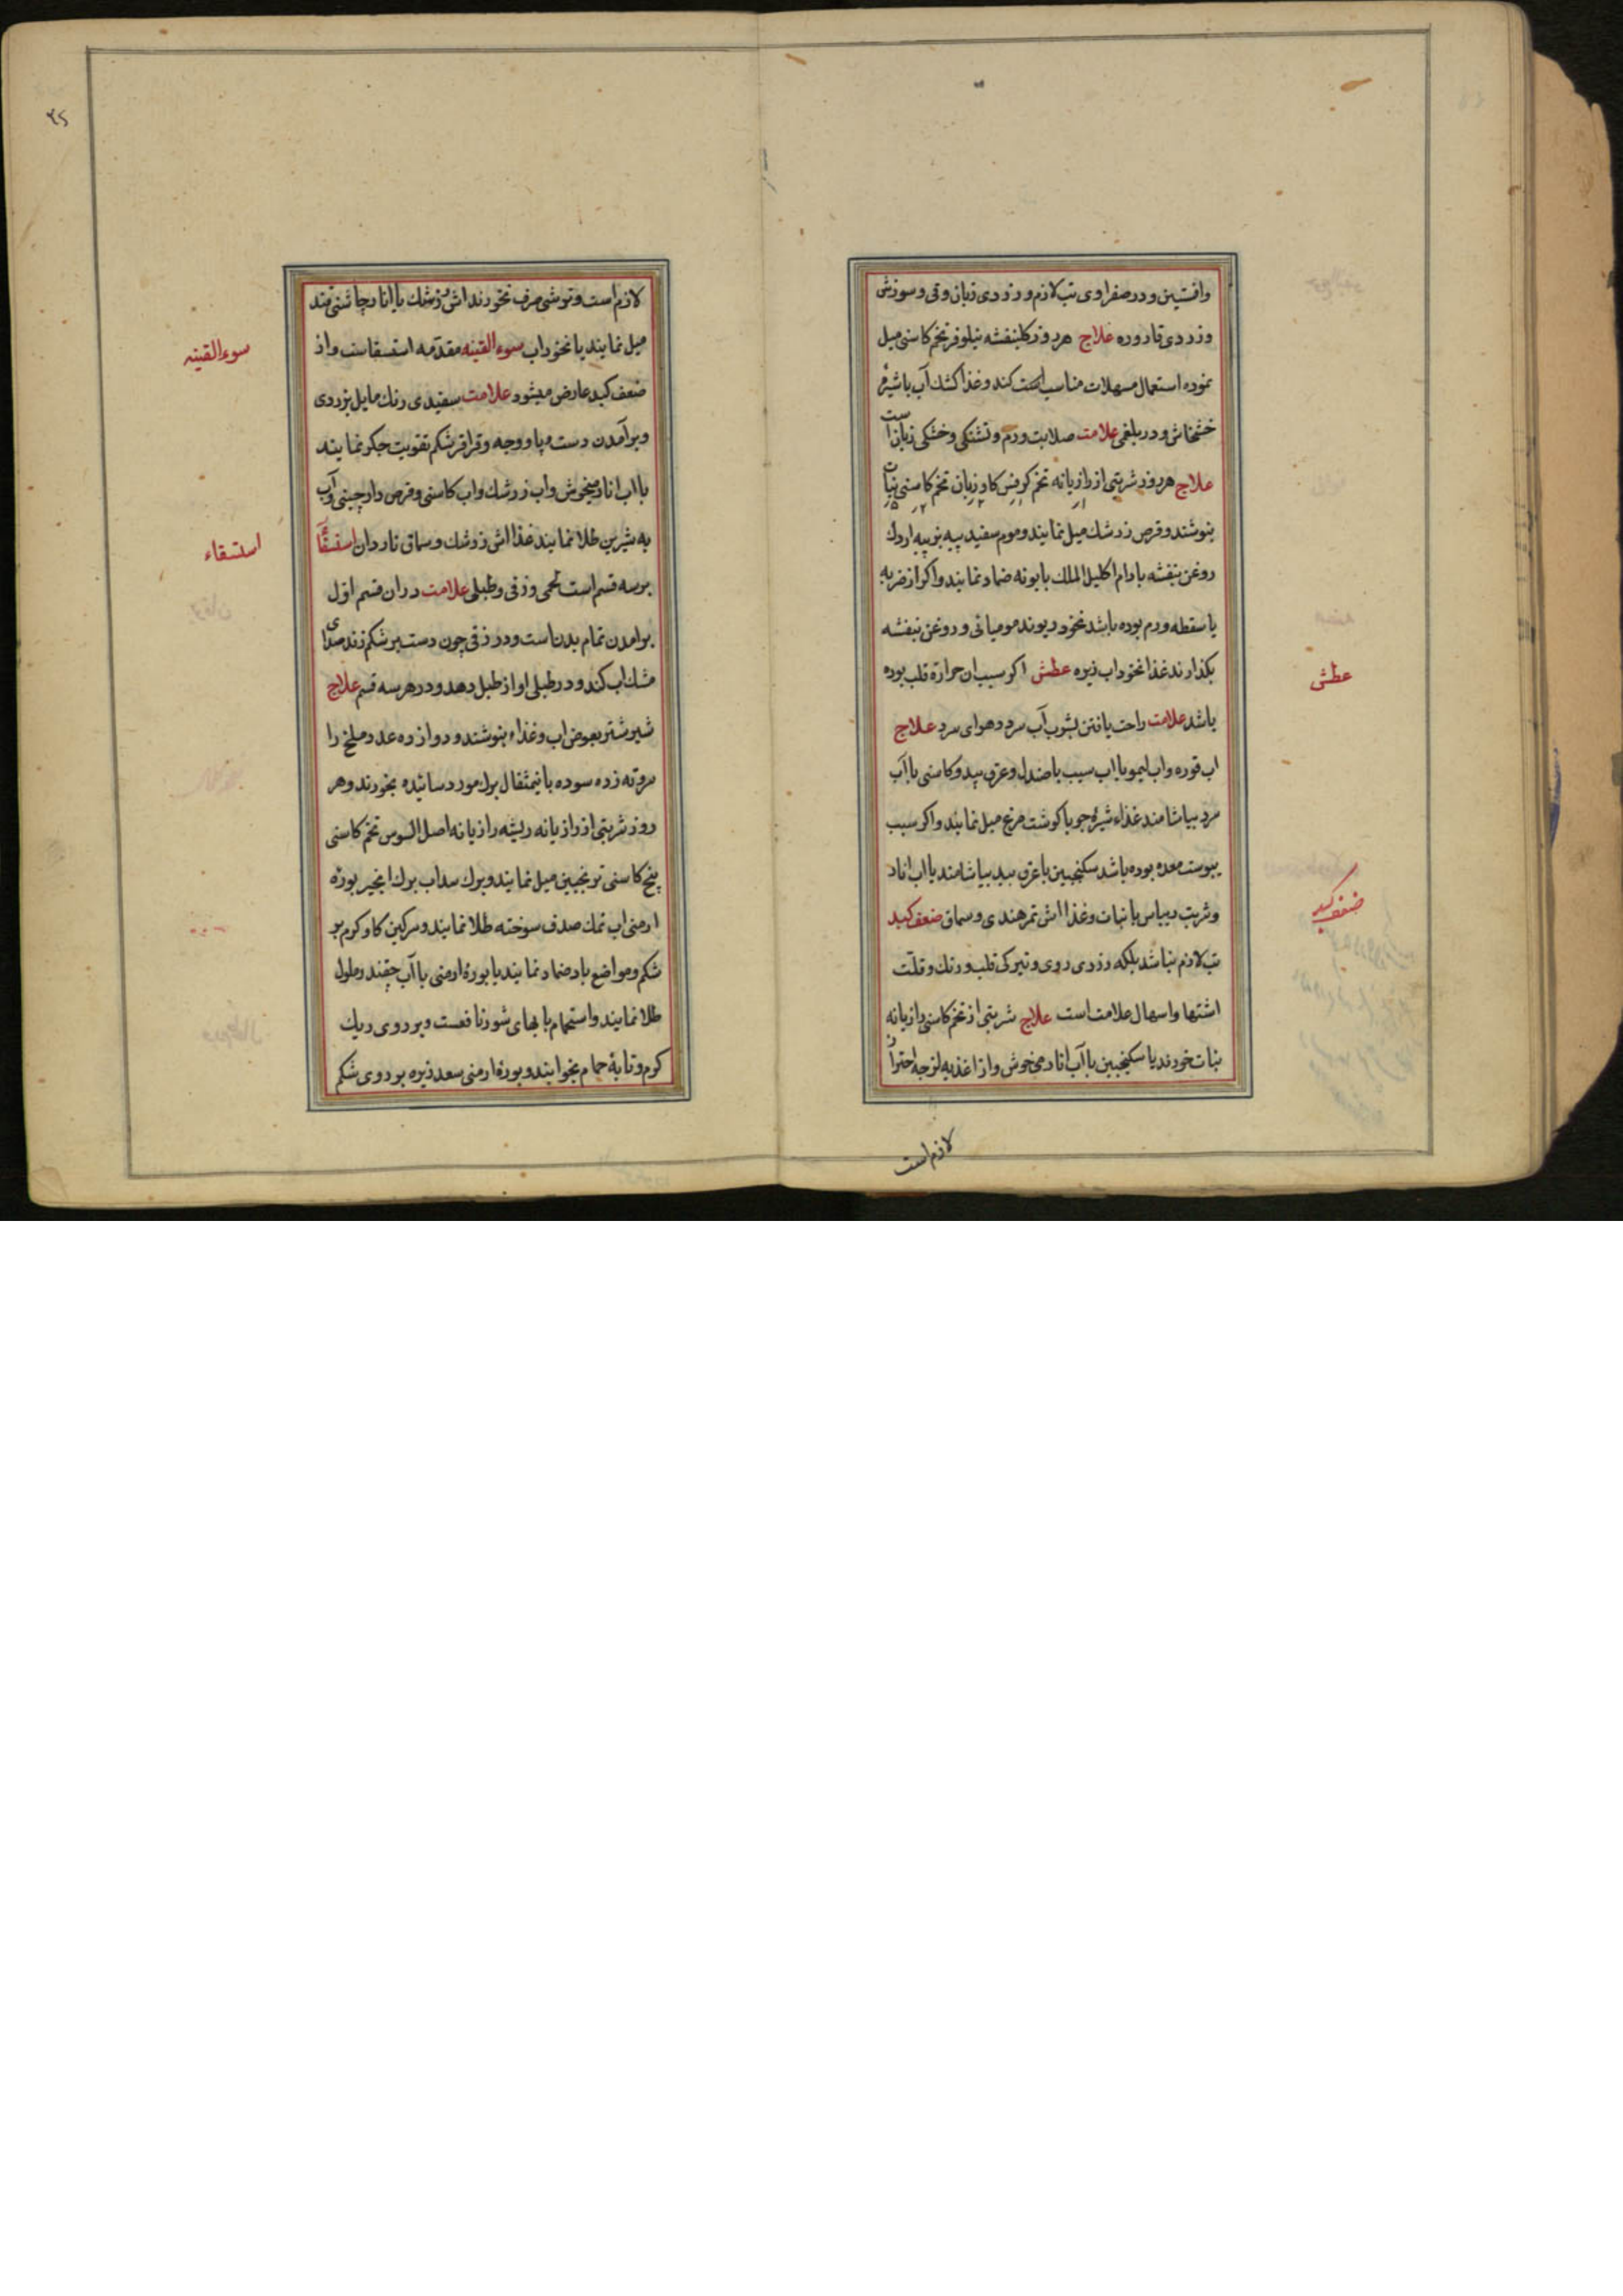 وافسنتین و در صفراوی تب لازم و زردی زبان و قی و سوزش
وزردی قاروره علاج هر روز کلبنفشه نیلوفر تخم کاسنی میل
نموده استعمال مسهلات مناسب است کند و غذا کشک آب با شیره
خشخاش و در بلغمی علامت صلابت ورم و تشنکی و خشکی زبان است
علاج هر روز شربتی از رازیانه تخم کرفس کاوزبان تخم کاسنی نبات
بنوشند و قرص زرشک میل نمایند و موم سفید پیه بز پیه اردک
روغن بنفشه بادام اکلیل الملک بابونه ضماد نمایند و اکر از ضربه
یا سقطه ورم بوده باشد نخود ریوند مومیائی و روغن بنفشه
بکذارند غذا نخوداب زیره عطش اکر سبب ان حرارة قلب بوده
باشد علامت راحت یافتن بشرب آب سرد و هوای سرد علاج
اب قوره و اب لیمو با اب سیب با صندل و عرق بید و کاسنی با آب
سرد بیاشامند غذاء شیره جو با کوشت مرغ میل نمایند و اکر سبب
یبوست معده بوده باشد سکنجبین با عرق بید بیاشامند یا اب انار
و شربت ریباس با نبات و غذا اش تمر هندی و سماق ضعف کبد
تب لازم نباشد بلکه زردی روی و تیرکی قلب و رنک و قلت
اشتها و اسهال علامت است علاج شربتی از تخم کاسنی رازیانه
نبات خورند یا سکنجبین با آب انار میخوش و از اغذیه لزجه احتراز
لازم است
عطش
ضعف کبد
۲۵
لازم است و ترشی صرف نخورند اش زرشک یا انار چاشنی قند
میل نمایند یا نخوداب سوء القینه مقدمه استسقاست و از
ضعف کبد عارض میشود علامت سفیدی رنک مایل بزردی
و برآمدن دست و پا و وجه و قراقر شکم تقویت جکر نمایند
با اب انار میخوش و اب زرشک و اب کاسنی و قرص دارچینی و آب
به شیرین طلا نمایند غذا اش زرشک و سماق ناردان استسقآء
بر سه قسم است لحمی و زقی و طبلی علامت در ان قسم اول
برامدن تمام بدن است و در زقی چون دست بر شکم زند صدای
مشک اب کند و در طبلی اواز طبل دهد و در هر سه قسم علاج
شیر شتر بعوض اب و غذاء بنوشند و دوازده عدد ملخ را
سر و ته زده سوده با نیمثقال برک مورد سائیده بخورند و هر
روز شربتی از رازیانه ریشه رازیانه اصل السوس تخم کاسنی
بیخ کاسنی ترنجبین میل نمایند و برک سداب برک انجیر بوره
ارمنی اب نمک صدف سوخته طلا نمایند و سرکین کاو کرم بر
شکم و مواضع باد ضماد نمایند یا بورهٔ ارمنی با آب چقندر محلول
طلا نمایند و استحمام بابهای شور نافعست و بر روی ریک
کرم و تابهٔ حمام بخوابند و بورهٔ ارمنی سعد زیره بر روی شکم
سوء القینه
استسقاء